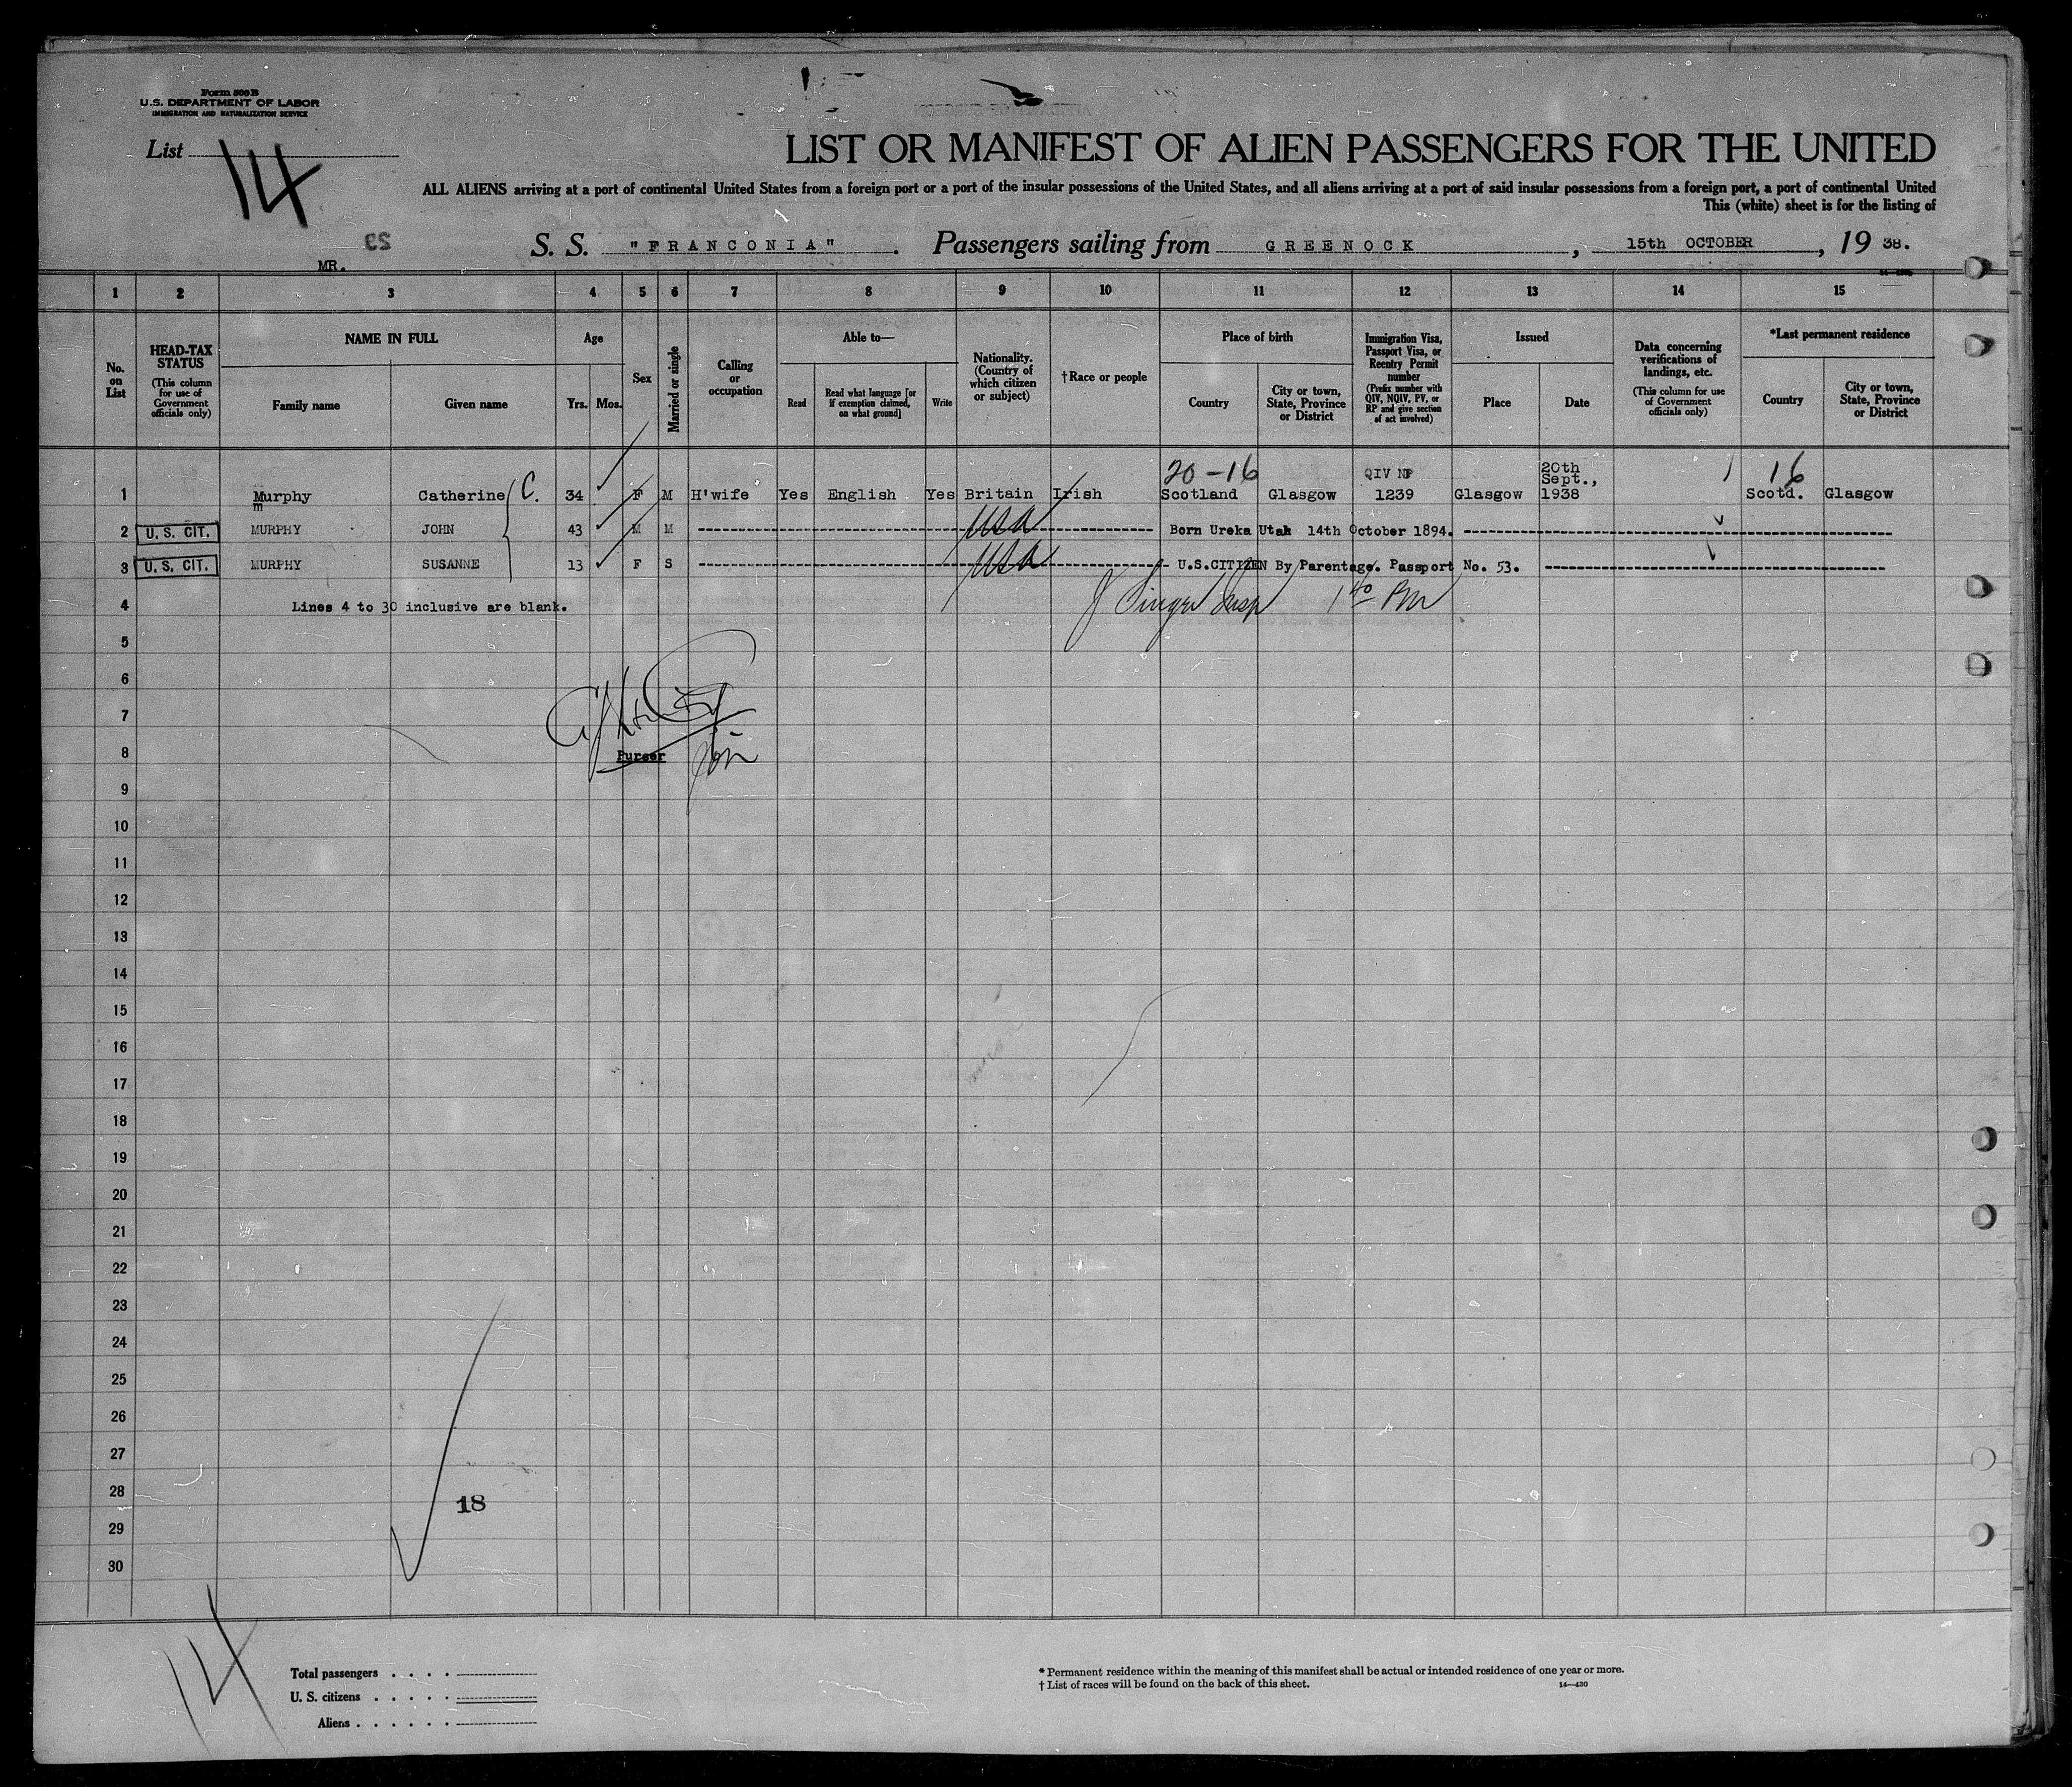 Form 500 B
U.S. DEPARTMENT OF LABOR
IMMIGRATION AND NATURALIZATION SERVICE
List 14
LIST OR MANIFEST OF ALIEN PASSENGERS FOR THE UNITED
ALL ALIENS arriving at a port of continental United States from a foreign port or a port of the insular possessions of the United States, and all aliens arriving at a port of said insular possessions from a foreign port, a port of continental United
This (white) sheet is for the listing of
S. S. "FRANCONIA". Passengers sailing from GREENOCK, 15th OCTOBER, 19 38.
23
MR.
1 2 3 4 5 6 7 8 9 10 11 12 13 14 15
No. on List
HEAD-TAX STATUS
(This column for use of Government officials only)
NAME IN FULL
Family name
Given name
Age
Yrs. Mos.
Sex
Married or single
Calling or occupation
Able to—
Read
Read what language [or if exemption claimed, on what ground]
Write
Nationality. (Country of which citizen or subject)
†Race or people
Place of birth
Country
City or town, State, Province or District
Immigration Visa, Passport Visa, or Reentry Permit number
(Prefix number with QIV, NQIV, PV, or RP and give section of act involved)
Issued
Place
Date
Data concerning verifications of landings, etc.
(This column for use of Government officials only)
*Last permanent residence
Country
City or town, State, Province or District
20-16 QIV NP 20th Sept., 16
1 Murphy Catherine C. 34 F M H'wife Yes English Yes Britain Irish Scotland Glasgow 1239 Glasgow 1938 Scotd. Glasgow
m
2 U. S. CIT. MURPHY JOHN 43 M M USA Born Ureka Utah 14th October 1894.
3 U. S. CIT. MURPHY SUSANNE 13 F S USA U.S.CITIZEN By Parentage. Passport No. 53.
4 Lines 4 to 30 inclusive are blank. J Singer Insp 1 40 PM
5
6
7
8 Purser
9
10
11
12
13
14
15
16
17
18
19
20
21
22
23
24
25
26
27
28
18
29
30
14
Total passengers . . . .
U. S. citizens . . . . .
Aliens . . . . . .
* Permanent residence within the meaning of this manifest shall be actual or intended residence of one year or more.
† List of races will be found on the back of this sheet.
14—430